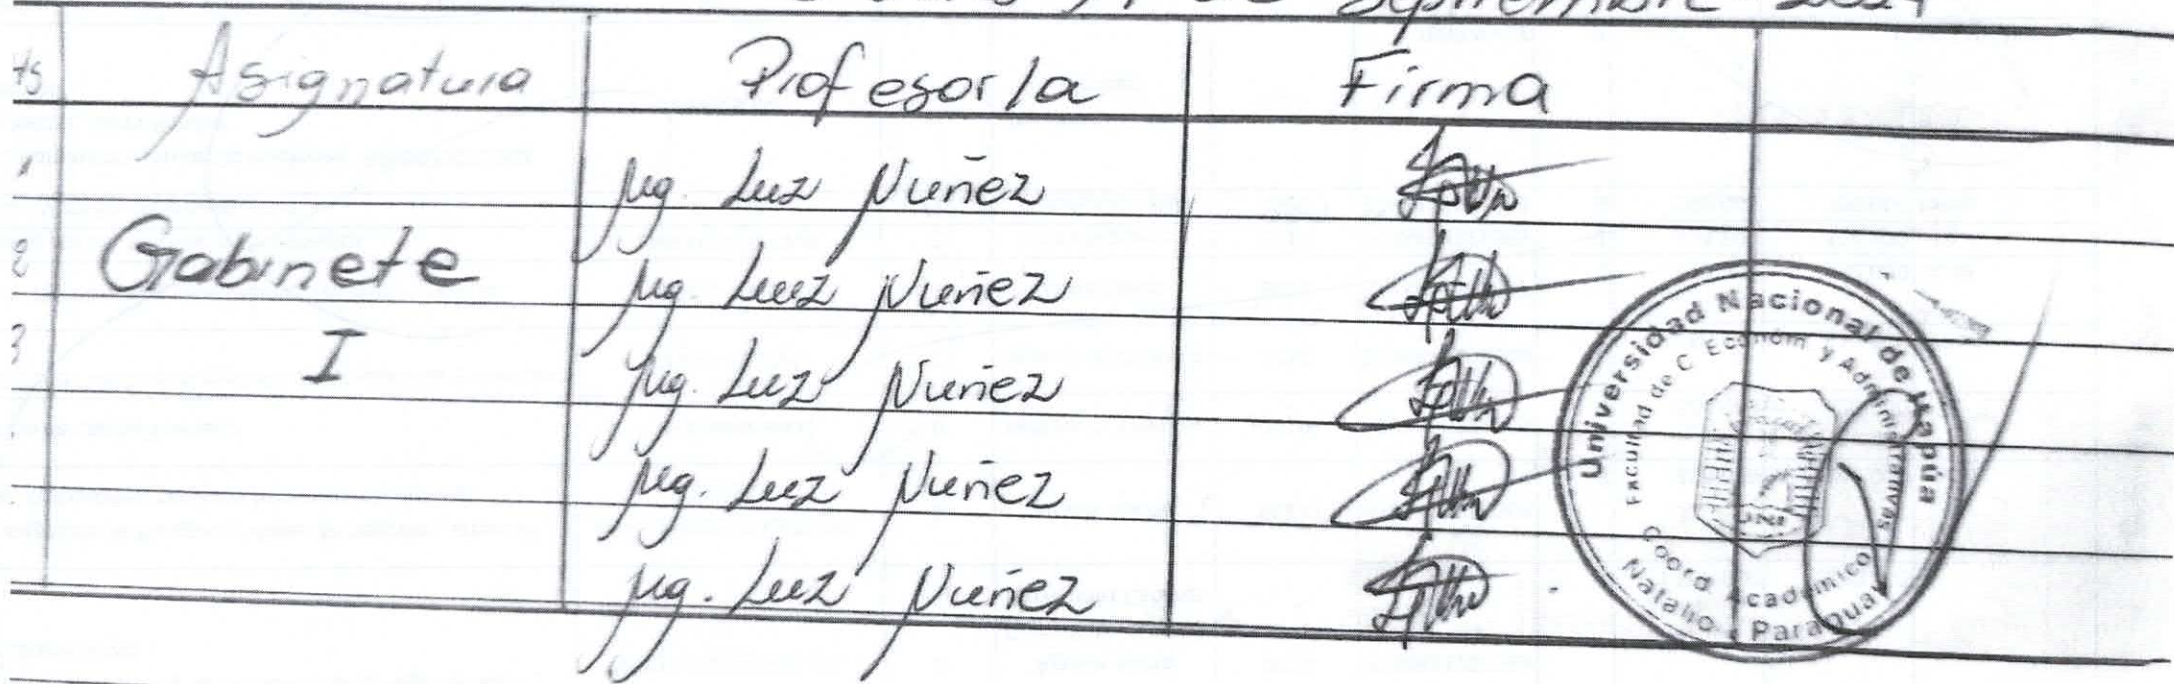 Septiembre 2024
Hs Asignatura Profesor/a Firma
Mg. Luz Nuñez
2 Gabinete Mg. Luz Nuñez
3 I Mg. Luz Nuñez
Mg. Luz Nuñez
Mg. Luz Nuñez
Universidad Nacional de Itapúa
Facultad de C Econom y Administrativas
Coord. Academico
Natalio Paraguay